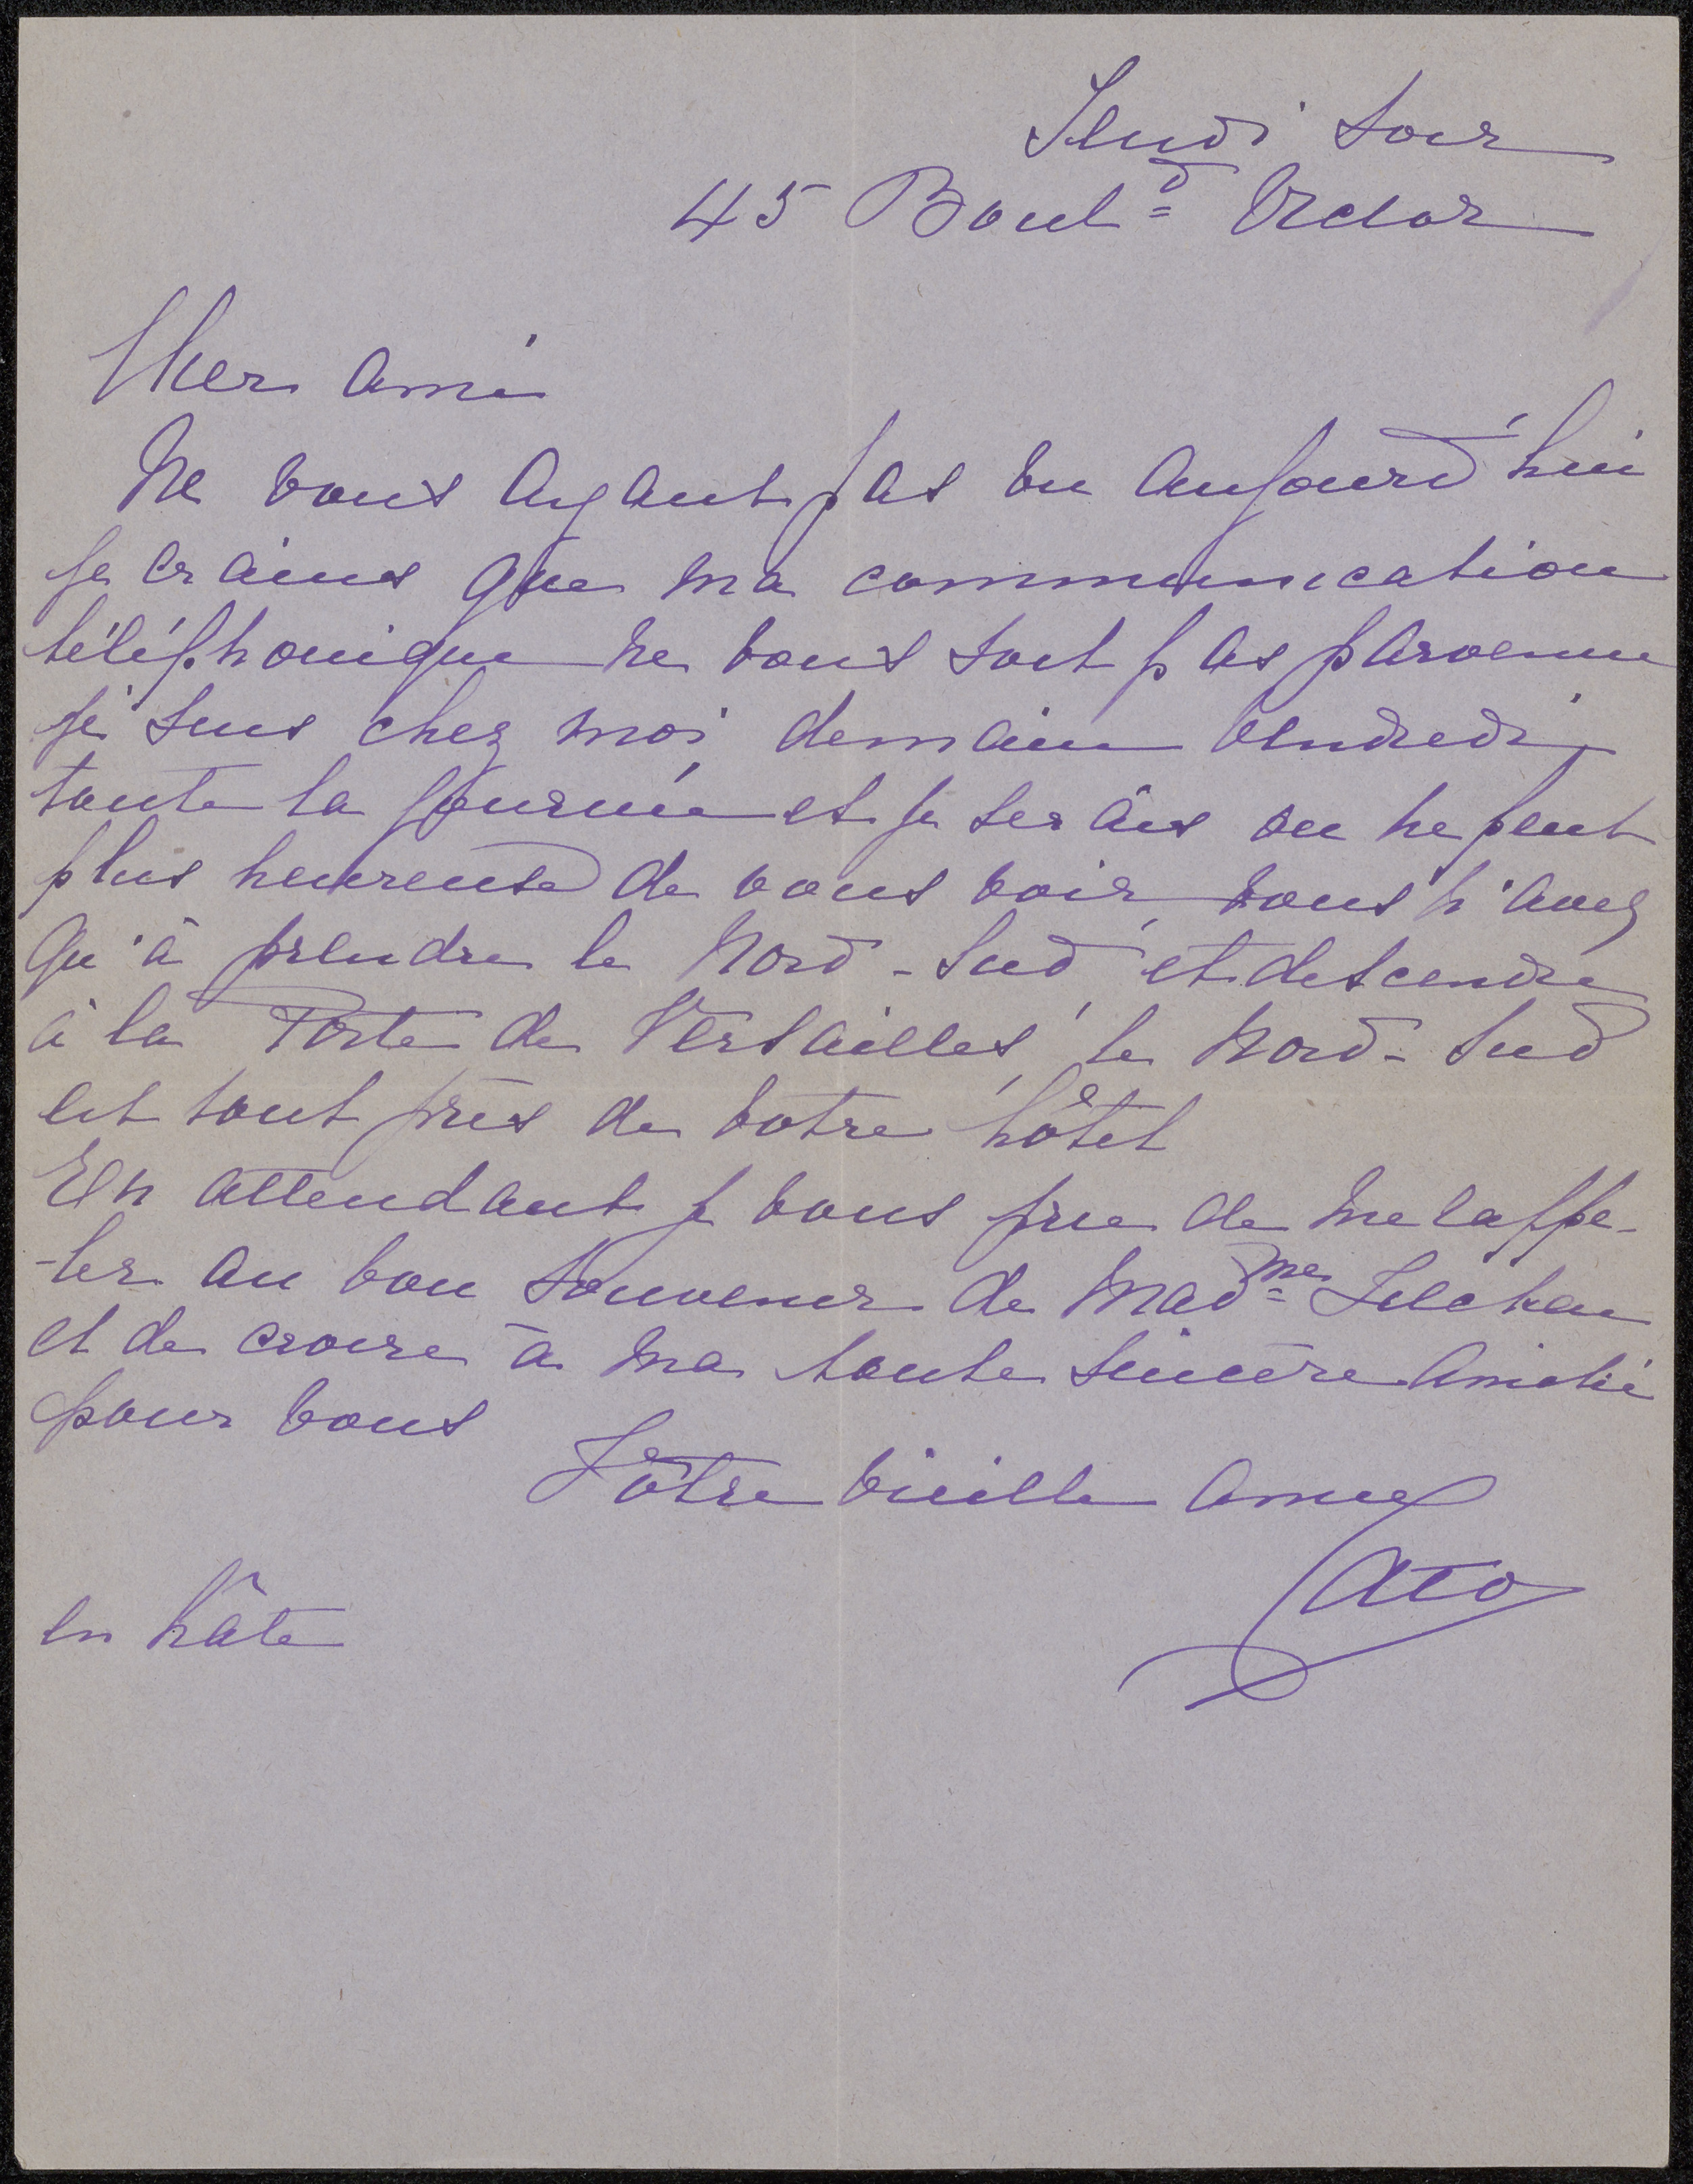 Jeudi soir
45 Boul=d Victor
Cher ami
Ne vous ayant pas vu aujourd'hui
je crains que ma communication
téléphonique ne vous soit pas parvenue
je suis chez moi demain vendredi,
toute la journée et je serais on ne peut
plus heureuse de vous voir, vous n'avez
qu'à prendre le Nord-Sud et descendre
à la Porte de Versailles, le Nord-Sud
est tout près de votre hôtel
En attendant je vous prie de me rappe-
-ler au bon souvenir de Mad=me
et de croire à ma toute sincère amitié
pour vous
Vôtre vieille amie
Cato
en hâte